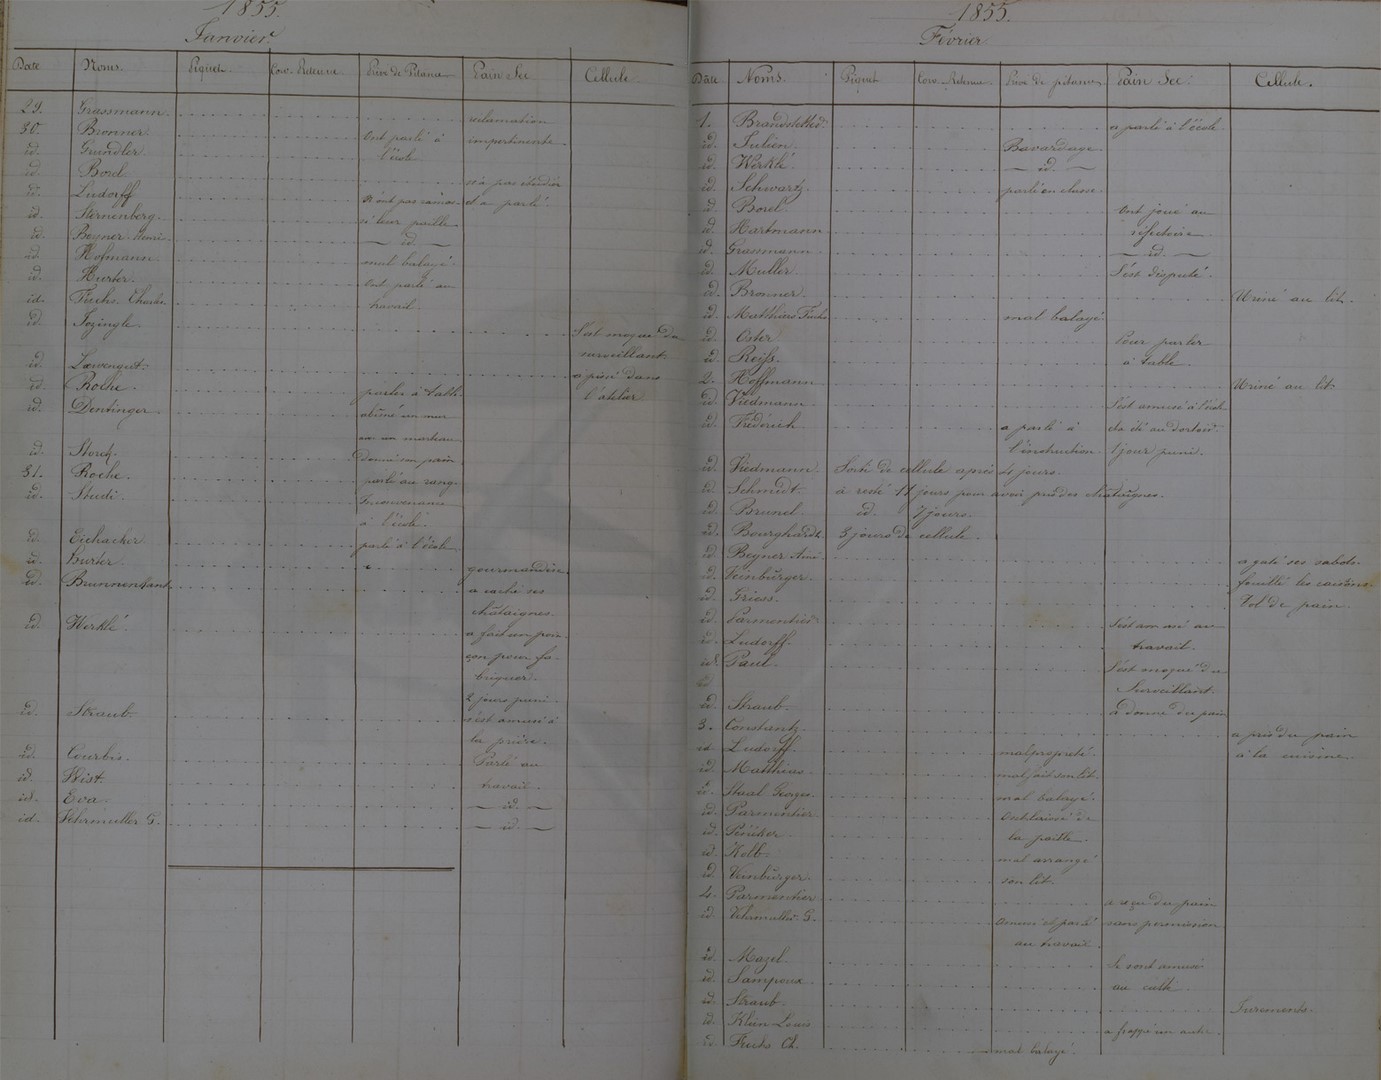 1855.
Janvier.
Date Noms. Piquet. Corv. Retenue Privé de Pitance Pain Sec Cellule
29. Grassmann. réclamation
30. Bronner. Ont parlé à impertinente
id. Gundler. l'école
id. Borel n'a pas étudié
id. Ludorff N'ont pas ramas- et a parlé.
id. Sternenberg. sé leur paille
id. Beyner Henri. id.
id. Hofmann. mal balayé.
id. Hurter. Ont parlé au
id. Fuchs Charles. travail.
id. Jezingle. S'est moqué du
surveillant.
id. Lœwengut. a pissé dans
id. Roche. parler à table. l'atelier
id. Dentinger. abîmé un mur
en un marteau
id. Storck. Donné son pain
31. Roche. parlé au rang.
id. Studi. Inconvenance
à l'école.
id. Eichacker. parlé à l'école
id. Hurter. gourmandise
id. Brunnenkant a caché ses
châtaignes.
id. Werklé. a fait son poin-
çon pour fa-
briquer.
2 jours puni.
id. Straub. s'est amusé à
la prière.
id. Courbis. Parlé au
id. Kist. travail.
id. Eva. id.
id. Vehrmuller G. id.
1855.
Février
Date Noms. Piquet Corv. Retenue. Privé de pitance Pain Sec. Cellule.
1. Brandstetter. a parlé à l'école
id. Julien. Bavardage.
id. Werklé id.
id. Schwartz. parlé en classe.
id. Borel. Ont joué au
id. Hartmann réfectoire
id. Grassmann id.
id. Muller. S'est disputé.
id. Bronner. Uriné au lit.
id. Matthieu Fuchs mal balayé.
id. Oster Pour parler
id. Reifs. à table.
2. Hoffmann Uriné au lit
id. Viedmann S'est amusé à l'école
id. Frédérich a parlé à et a été au dortoir.
l'instruction. 1 jour puni.
id. Viedmann. Sorti de cellule après 4 jours.
id. Schmidt. à resté 11 jours pour avoir pris des châtaignes.
id. Brunel. id. 7 jours.
id. Bourghardt. 3 jours de cellule.
id. Beyner Aimé. a gaté ses sabots.
id. Veinburger. fouillé les caissons.
id. Griess. Vol de pain.
id. Parmentier. S'est amusé au
id. Ludorff. travail.
id. Paul. S'est moqué du
id. Surveillant.
id. Straub. a donné du pain
3. Constantz a pris du pain
id Ludorff. malpropreté. à la cuisine.
id. Matthias. mal fait son lit.
id. Staal Georges. mal balayé.
id. Parmentier. Ont laissé de
id. Pericker la paille.
id. Kolb. mal arrangé
id. Veinburger. son lit.
4. Parmentier a reçu du pain
id. Vehrmuller G. et parlé sans permission
au travail.
id. Mazel. Se sont amusés
id. Sampoux. au culte
id. Straub. Jurements.
id. Klein Louis a frappé un autre.
id. Fuchs Ch. mal balayé.